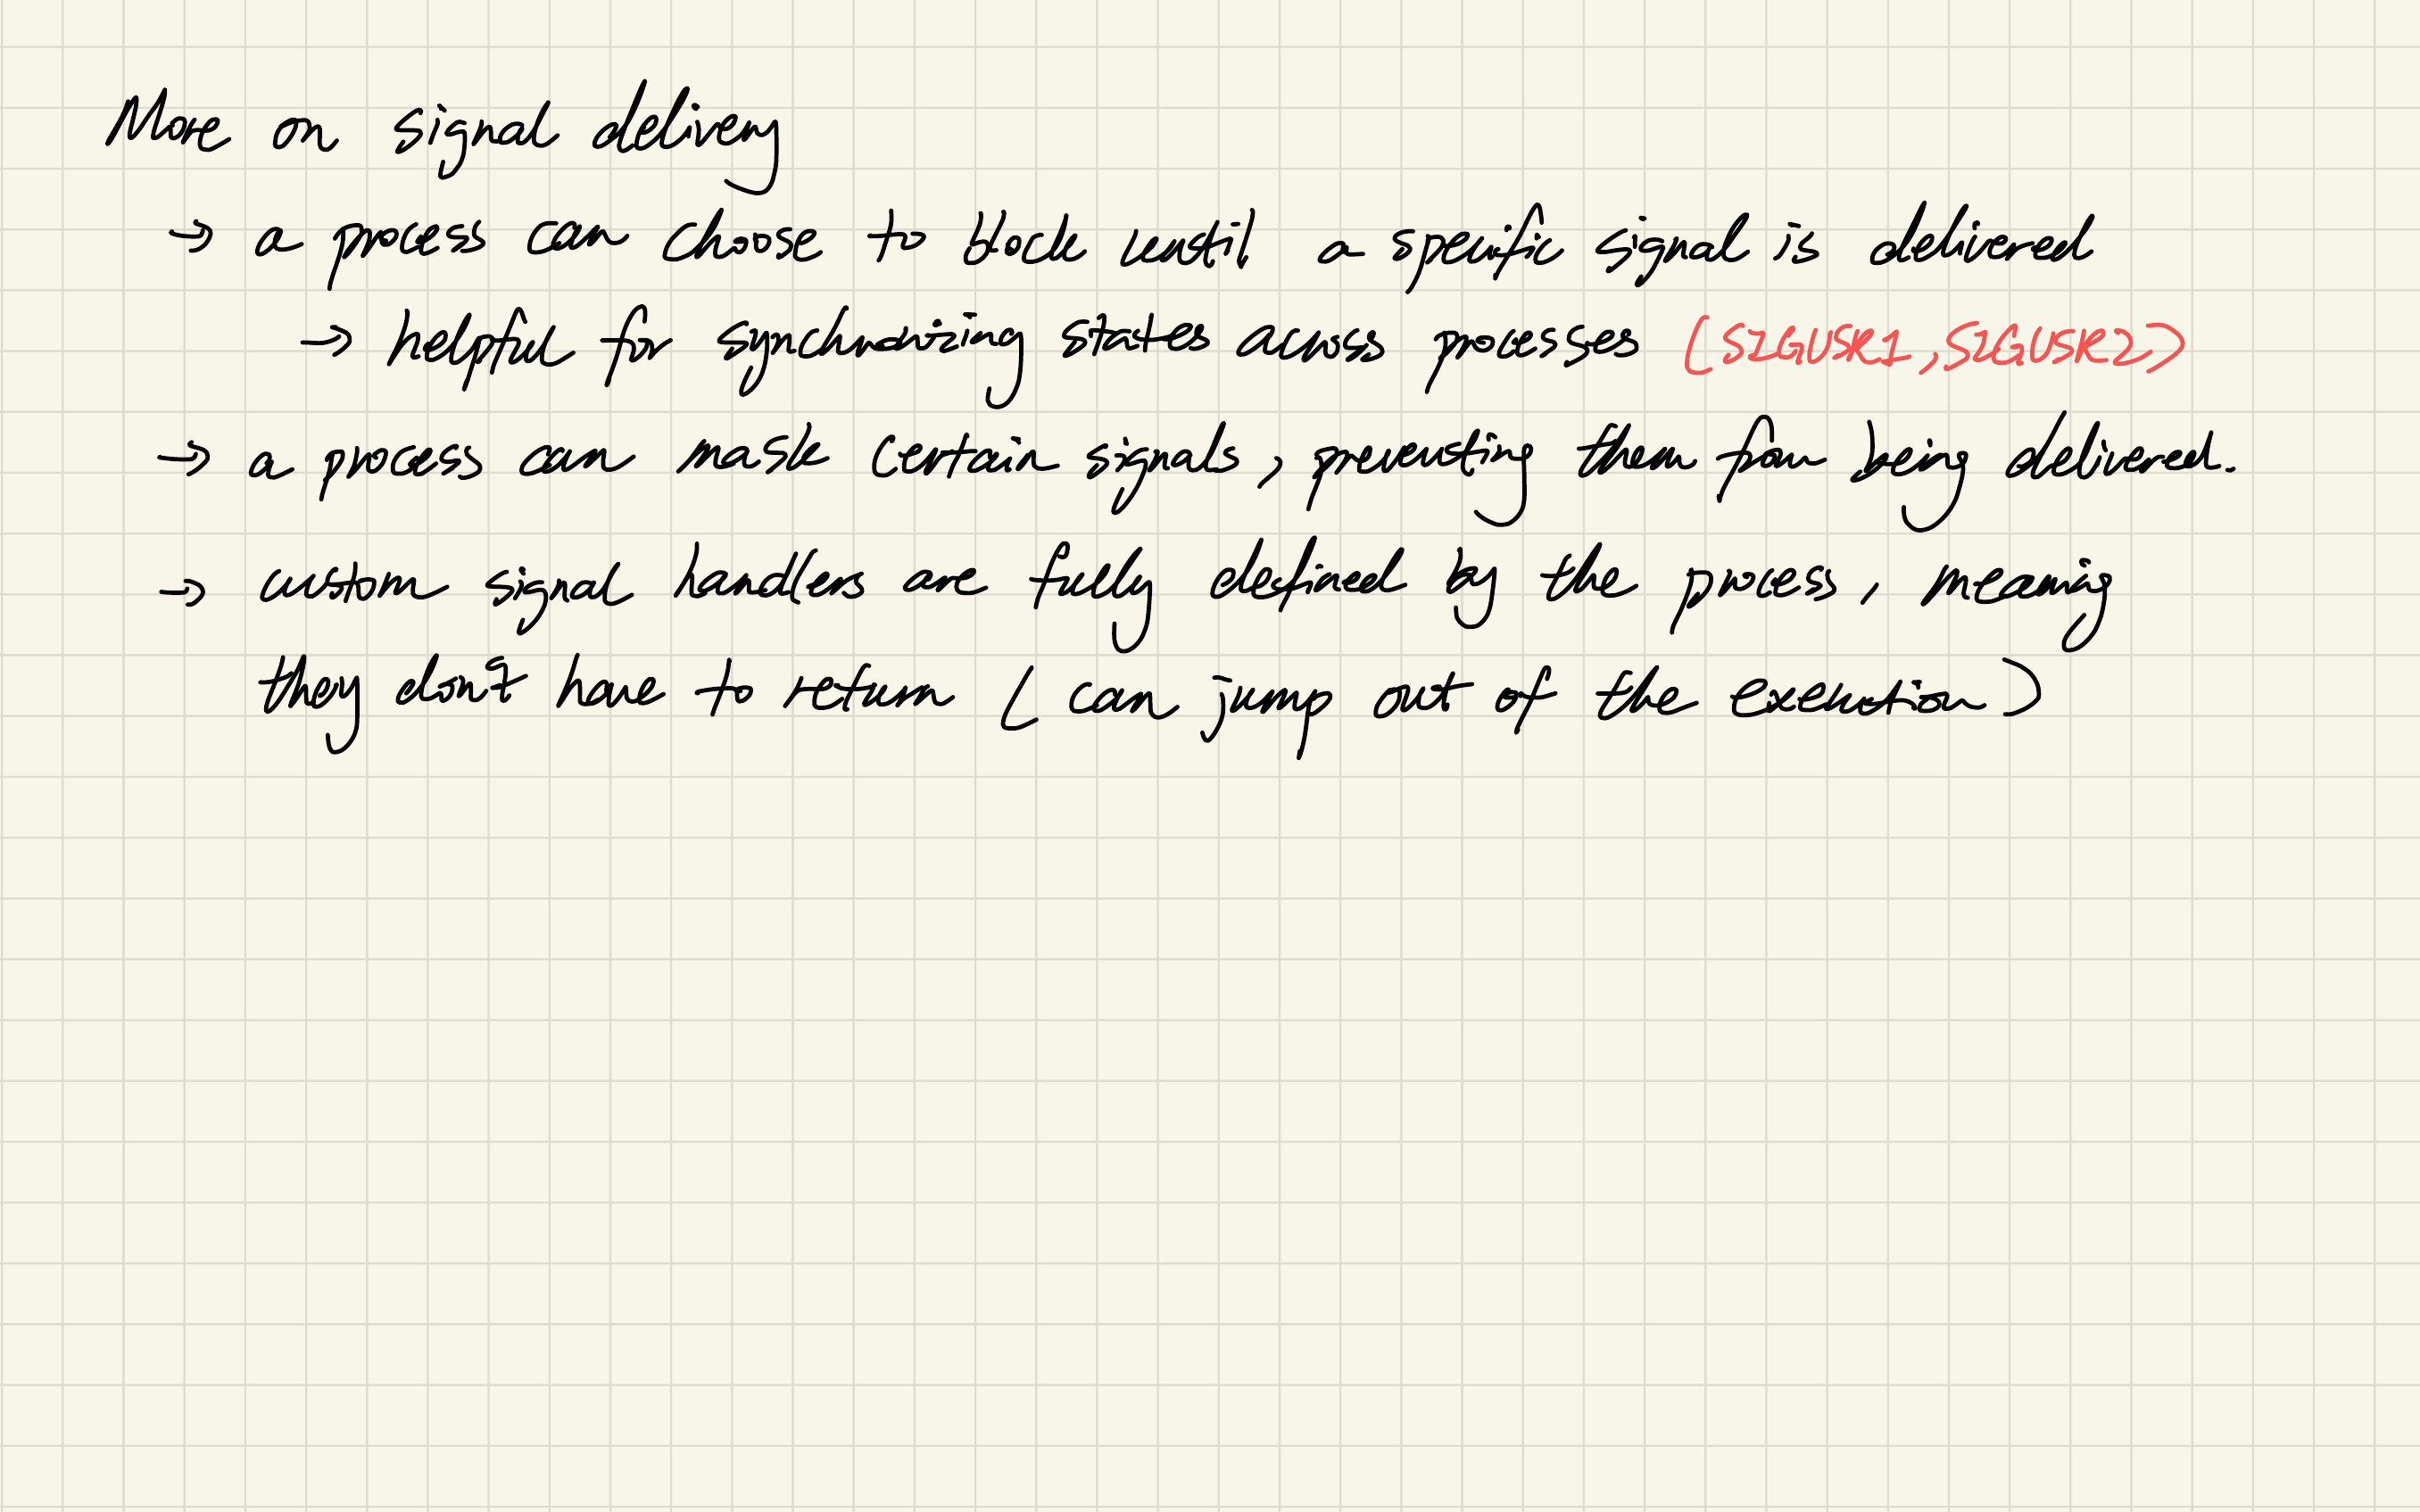 More on signal delivery
→ a process can choose to block until a specific signal is delivered
→ helpful for synchronizing states across processes (SIGUSR1, SIGUSR2)
→ a process can mask certain signals, preventing them from being delivered.
→ custom signal handlers are fully defined by the process, meaning
they don't have to return (can jump out of the execution)